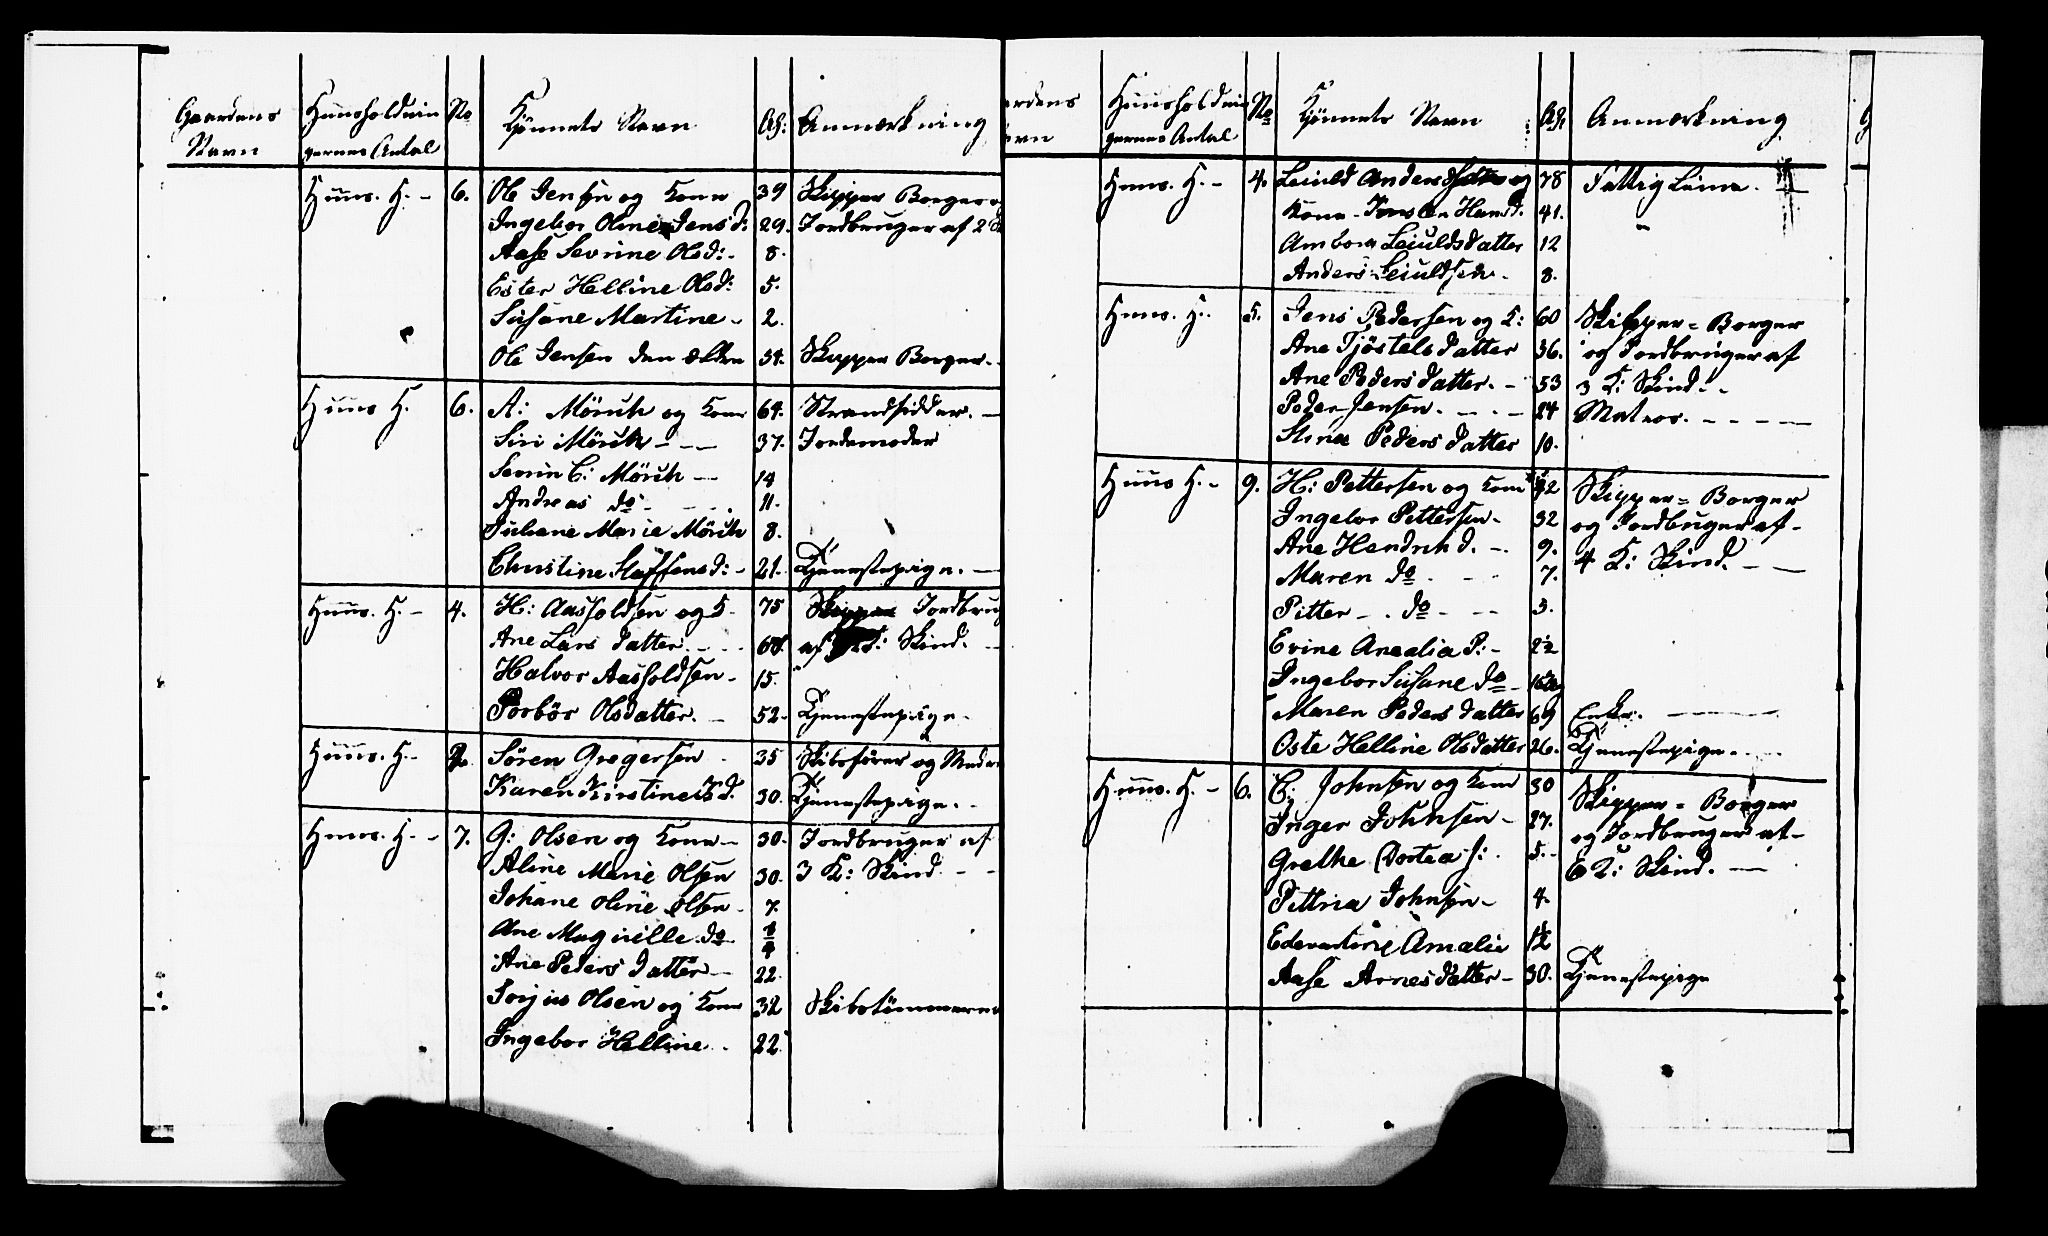 Gaardens Huusholdnin No Kjönnets Navn Al: Anmærkning
Navn gernes Antal
Huus. H. - 6. Ole Jensen og Kone 39 Skipper Borger og
Ingebor Oline Jens d: 29. Jordbruger af 2
Aase Sevrine Olsd: - 8.
Ester Helline Olsd: 5.
Susane Martine - 2.
Ole Jensen den ældre 34. Skipper Borger. -
Huus H. 6. A: Mörch og Kone 64. Strandsidder. -
Siri Mörch - - - 37. Jordemoder
Sevrin C: Mörch - - 14
Andreas do - - - 11.
Juliane Marie Mörch 8.
Christine Staffens d: - 21. Tjenestepige. -
Huus. H. - 4. H: Aasholdsen og K. 75 Jordbrug
Ane Lars datter. - - - 64. af K: Skind. -
Halvor Aasholdsen - 15.
Torbör Olsdatter. - 52. Tjenestepige -
Huus. H. - 2. Sören Gregersen 35 Skibsförer og
Karen Kirstine d. 30. Tjenestepige. -
Huus. H. - 7. G: Olsen og Kone - 30. Jordbruger af
Aline Marie Olsen 30. 3 K: Skind - -
Johane Oline Olsen - 7.
Ane Magnille do 1/4
Ane Peders datter - 22.
Torjus Olsen og Kone 32 Skibstömmerm
Ingebor Helline - 22
ardens Huusholdnin No Kjönnets Navn Al: Anmærkning
avn gernes Antal
Huus. H. - 4. Leiuld Andersen og 78 Fattig Lem.
Kone - Torsten Hans d. 41.
Ambor Leiuldsdatter 12
Anders Leiuldsen - 8.
Huus. H. 5. Jens Pedersen og K: 60 Skipper = Borger
Ane Tjöstels datter 36. og Jordbruger af
Ane Peders datter. - 53 3 K: Skind. -
Peder Jensen. - - - 24 Matros. - - - -
Stine Peders datter 10.
Huus H. - 9. H: Pettersen og Kone 32 Skipper = Borger
Ingebor Pettersen - 32 og Jordbruger af -
Ane Hendrik d. - 9. 4 K: Skind. - -
Maren do - - 7.
Pitter - . do - - - 5.
Evine Amalia P: - 2 1/2
Ingebor Susane do -
Maren Peders datter 69 Enke. - - -
Oste Helline Olsdatter 26. Tjenestepige. - -
Huus. H. - 6. C: Johnsen og Kone 30 Skipper = Borger
Inger Johnsen - 27. og Jordbruger af -
Grethe Dortea J: 5. - 6 K: Skind. -
Pittria Johnsen - 4.
Edevartine Amalie 1 1/2
Aase Arnes datter - 30. Tjenestepige